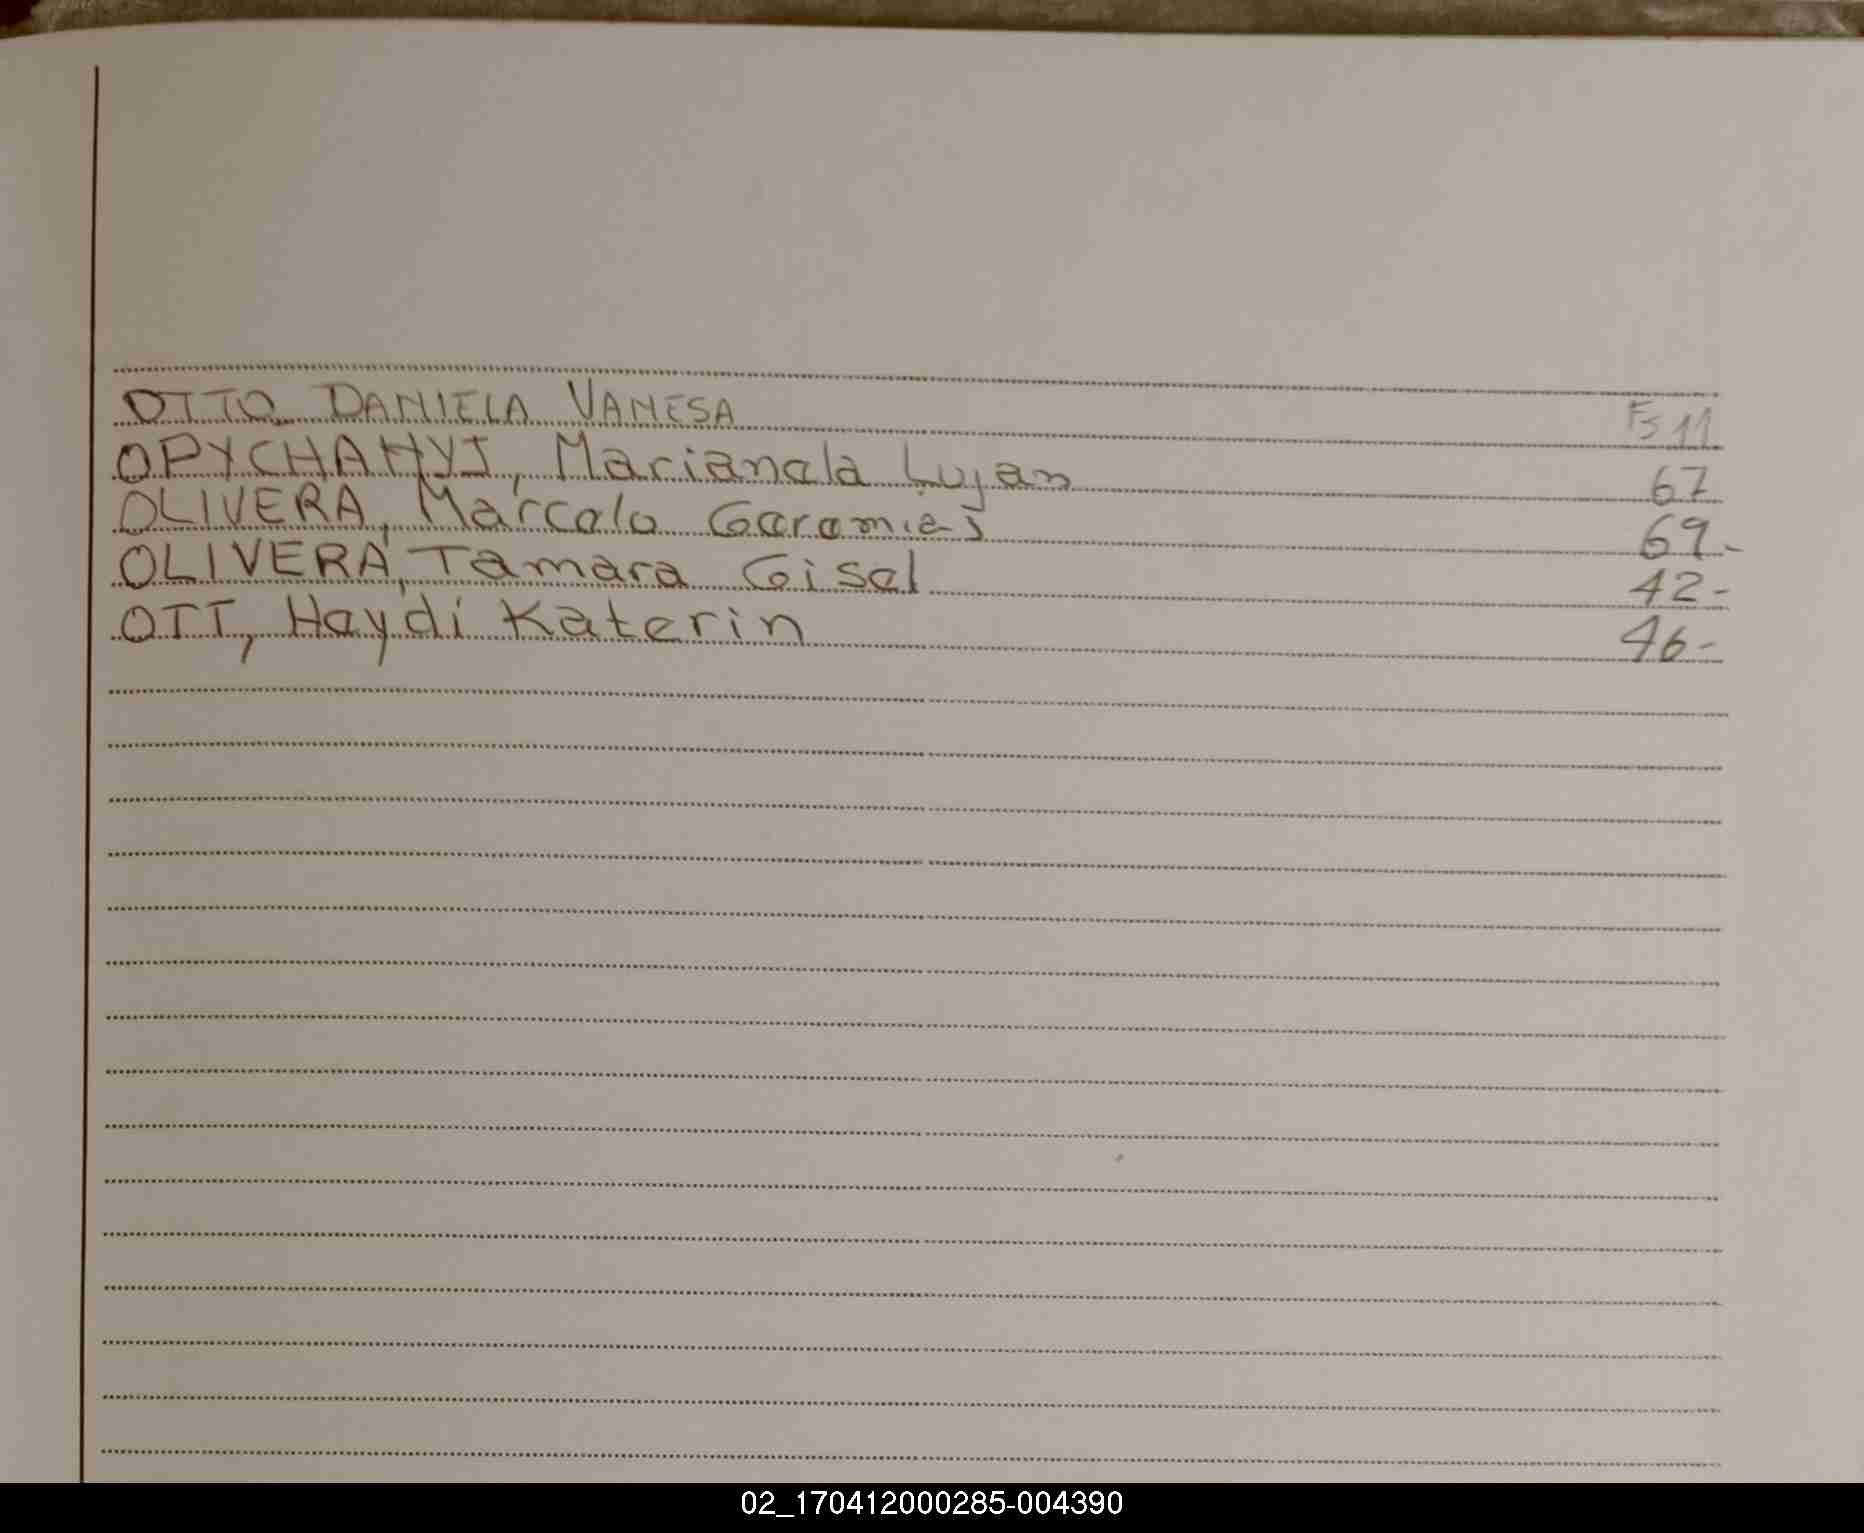 OTTO DANIELA VANESA Fs 11
OPYCHANYI, Marianela Lujan 67
OLIVERA, Marcelo Geremias 69-
OLIVERA, Tamara Gisel 42-
OTT, Haydi Katerin 46-
02_170412000285-004390